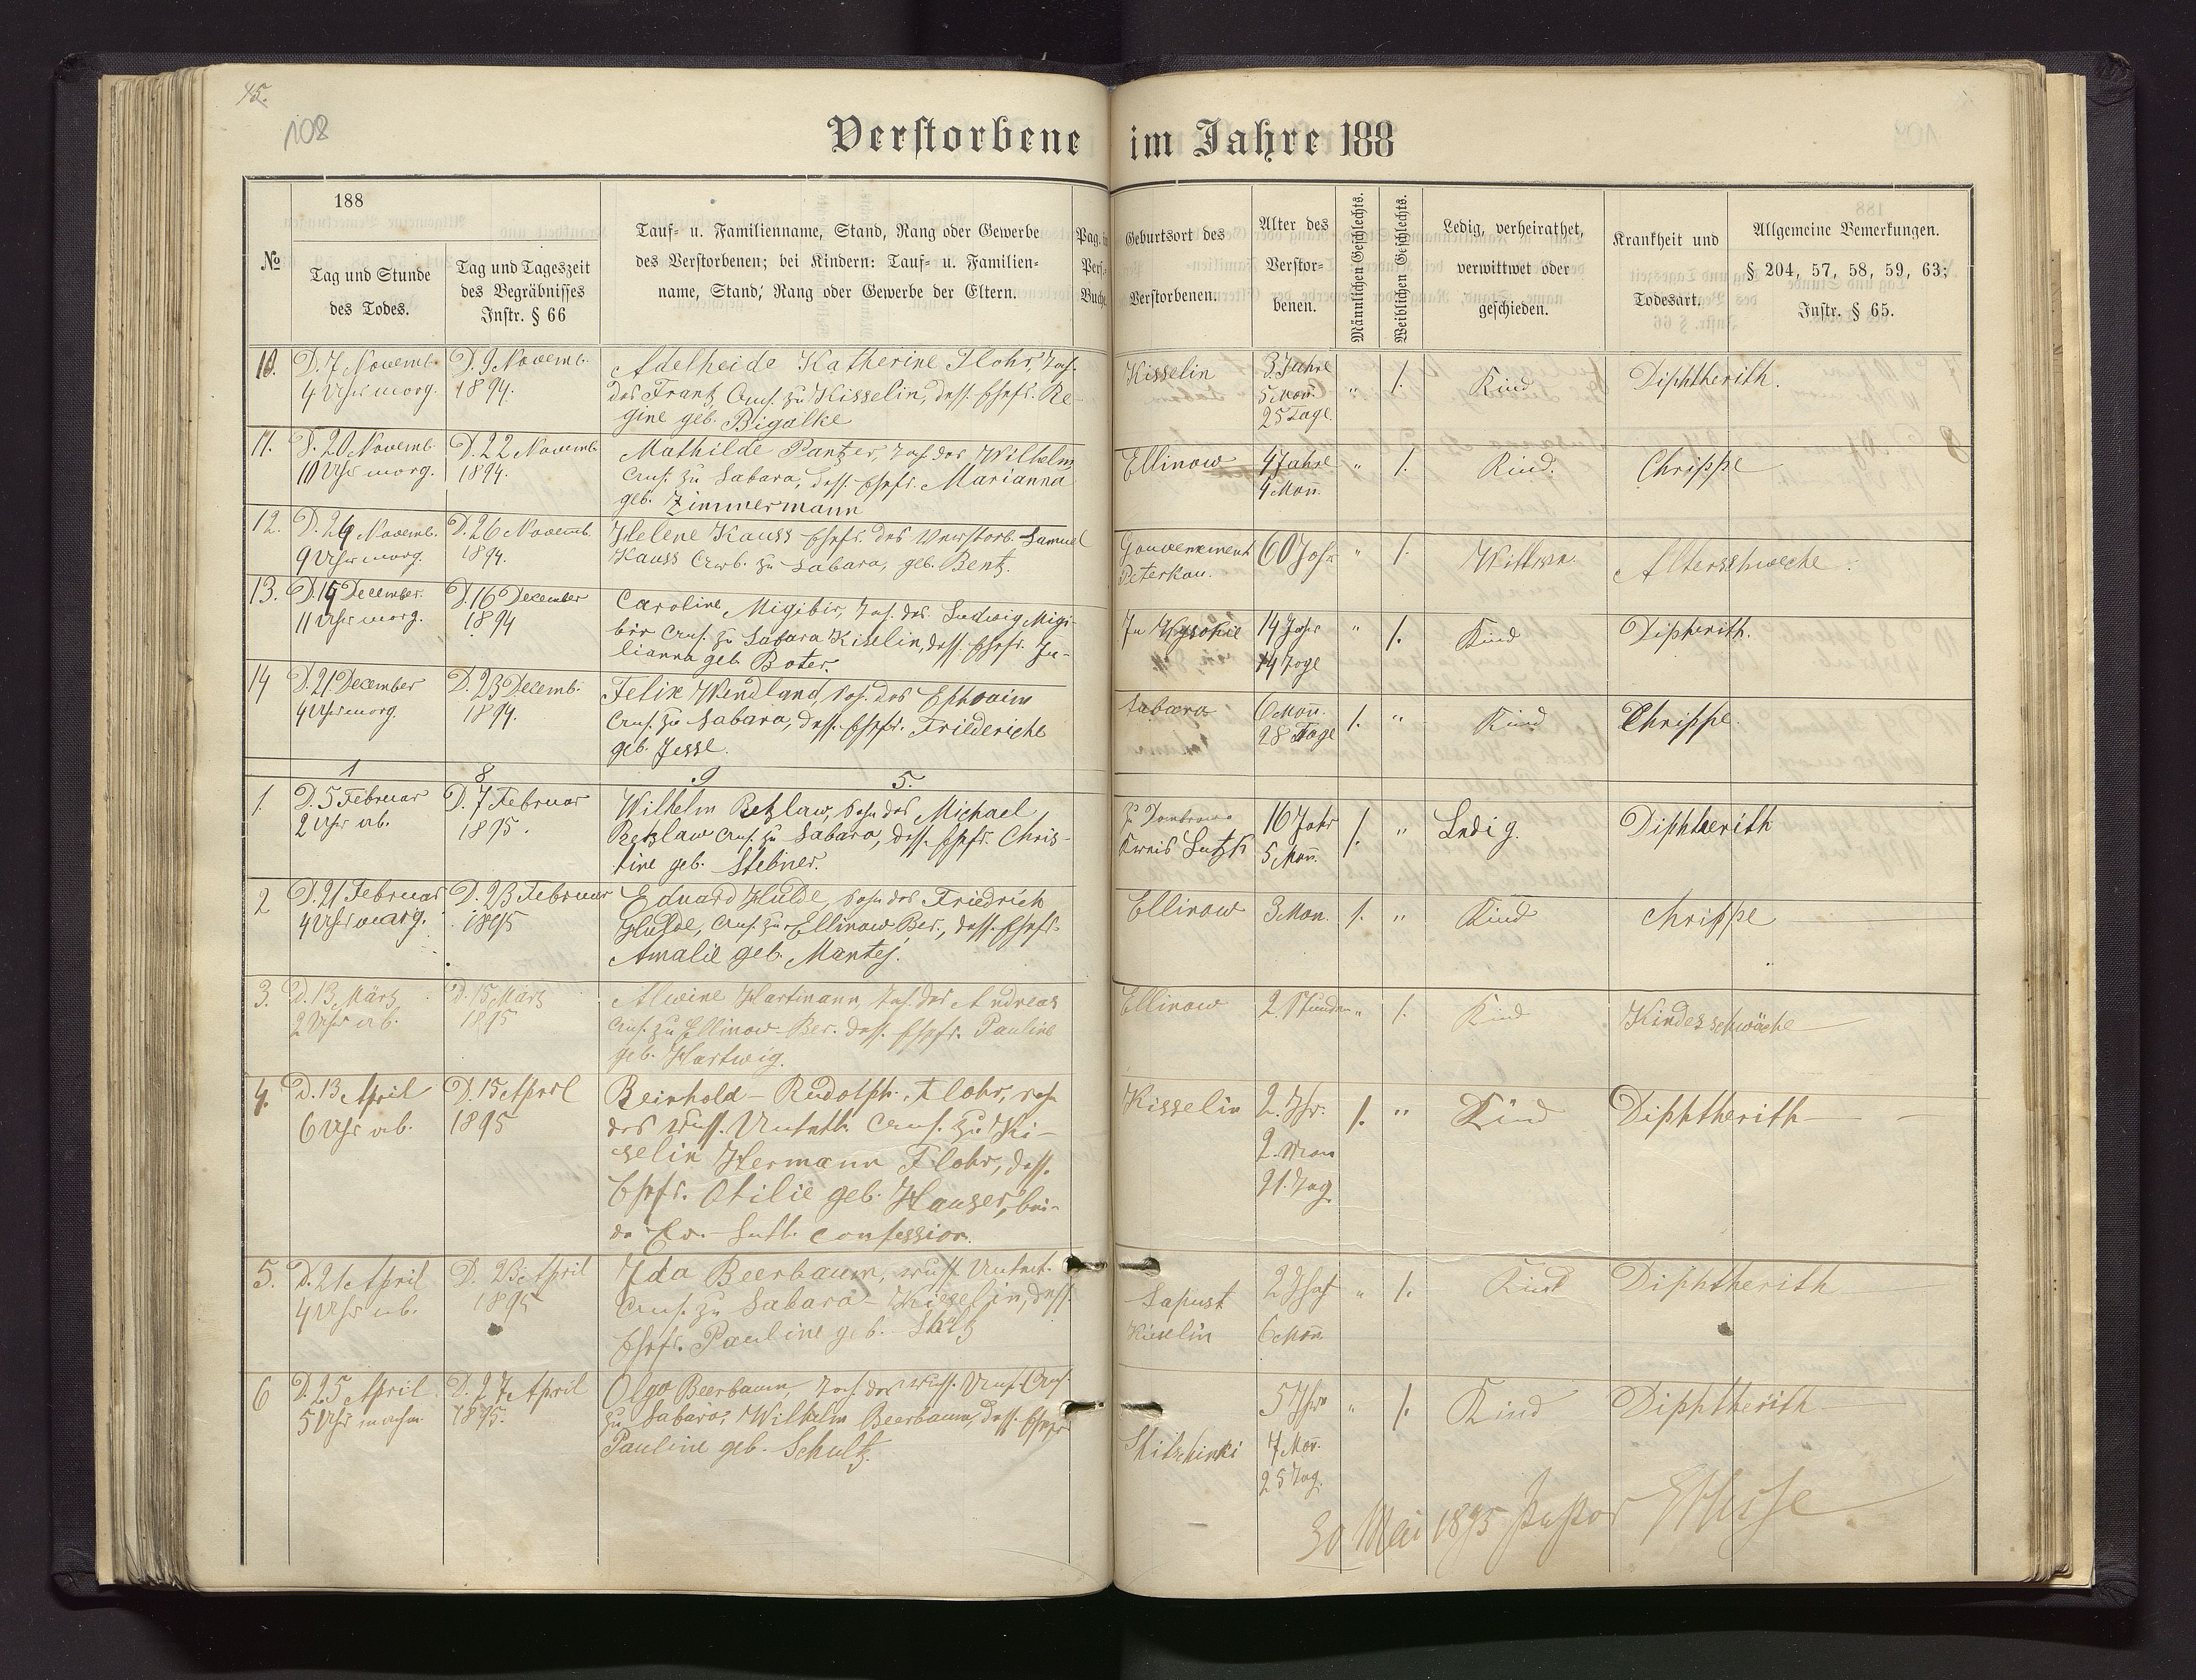 45.
108
Verstorbene im Jahre 188
№
188
Tag und Stunde
des Todes.
Tag und Tageszeit
des Begräbnisses
Instr. § 66
Tauf- u. Familienname, Stand, Rang oder Gewerbe
des Verstorbenen; bei Kindern: Tauf- u. Familien-
name, Stand, Rang oder Gewerbe der Eltern.
Pag. in
Pers.
Buche
Geburtsort des
Verstorbenen.
Alter des
Verstor-
benen.
Männlichen Geschlechts.
Weiblichen Geschlechts.
Ledig, verheirathet,
verwittwet oder
geschieden.
Krankheit und
Todesart.
Allgemeine Bemerkungen.
§ 204, 57, 58, 59, 63;
Instr. § 65.
10.
D. 7 Novemb.
4 Uhr morg.
D. 9 Novemb.
1894.
Adelheide Katherine Flohr,
des Frantz zu Kisselin, dess. Ehefr. Re-
gine geb. Bigalke
Kisselin
3 Jahre
5 Mon.
25 Tage.
" 1.
Kind
Diphtherith.
11.
D. 20 Novemb.
10 Uhr morg.
D. 22 Novemb.
1894.
Mathilde Pantzer, des Wilhelm
zu Sabara, dess. Ehefr. Marianna
geb. Zimmermann
Ellinow
4 Jahre
4 Mon.
" 1.
Kind.
Chrippe
12.
D. 24 Novemb.
9 Uhr morg.
D. 26 Novemb.
1894.
Helene Kauss Ehefr. des Verstorb. Samuel
Kauss zu Sabara, geb. Bentz.
Gouvernement
Peterkau.
60 Jahr
" 1.
Wittwe.
Altersschweche
13.
D. 14 December.
11 Uhr morg.
D. 16 December
1894
Caroline Migibir, des Ludwig Migi-
bir zu Sabara Kiselin, dess. Ehefr. Ju-
lianna geb. Boter.
14 Jahr
14 Tage
" 1.
Kind
Dipherith.
14
D. 21 December
4 Uhr morg.
D. 23 Decemb.
1894.
Felix Wendland, Sohn des Ephraim
zu Sabara, dess. Ehefr. Friederiche
geb. Jesse.
Sabara
6 Mon.
28 Tage
1. "
Kind
Chrippe.
1 8 9 5.
1.
D. 5 Februar
2 Uhr ab.
D. 7 Februar
1895.
Wilhelm Retzlaw, Sohn des Michael
Retzlaw zu Sabara, dess. Ehefr. Chris-
tine geb. Stebner.
Kreis Lutzk
16 Jahr
5 Mon.
1. "
Ledig.
Diphtherith
2
D. 21 Februar
4 Uhr morg.
D. 23 Februar
1895
Eduard Hulde, Sohn des Friedrich
Hulde, zu Ellinow Bes., dess. Ehefr.
Amalie geb. Mantej.
Ellinow
3 Mon.
1. "
Kind
chrippe
3.
D. 13 März
2 Uhr ab.
D. 15 März
1895
Alwine Hartmann, des Andreas
zu Ellinow Bes. dess. Ehefr. Pauline
geb. Hartwig.
Ellinow
2 Stunden
" 1.
Kind
Kindesschwäche
4.
D. 13 April
6 Uhr ab.
D. 15 April
1895
Reinhold - Rudolph Flohr, Sohn
des russ. Unterth. zu Ki-
selin Hermann Flohr, dess.
Ehefr. Otilie geb. Hauser, bei-
de Ev. - Luth. Confession.
Kisselin
2. Jhr.
2. Mon
21. Tag.
1. "
Kind
Diphtherith
5.
D. 21 April
4 Uhr ab.
D. 23 April
1895
Ida Beerbaum, russ.
zu Sabara - Kiselin, dess.
Ehefr. Pauline geb.
Sapust
Kiselin
2 Jhr
6 Mon.
" 1.
Kind
Diphtherith
6
D. 25 April
5 Uhr
D. 27 April
1895.
Olga Beerbaum, des russ.
zu Sabara, Wilhelm Beerbaum, dess. Ehefr.
Pauline geb. Schultz.
5 Jhr
7 Mon.
25 Tag.
" 1.
Kind
Diphtherith
30 Mai 1895 Pastor